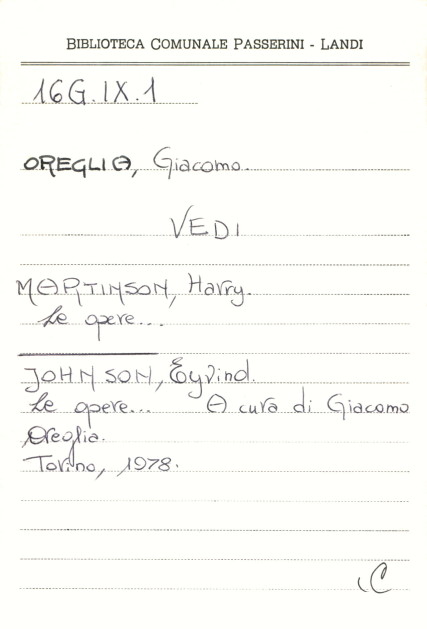 BIBLIOTECA COMUNALE PASSERINI - LANDI
16G.IX.1
OREGLIA, Giacomo.
VEDI
MARTINSON, Harry.
Le opere...
JOHNSON, Eyvind.
Le opere... A cura di Giacomo
Oreglia.
Torino, 1978.
C